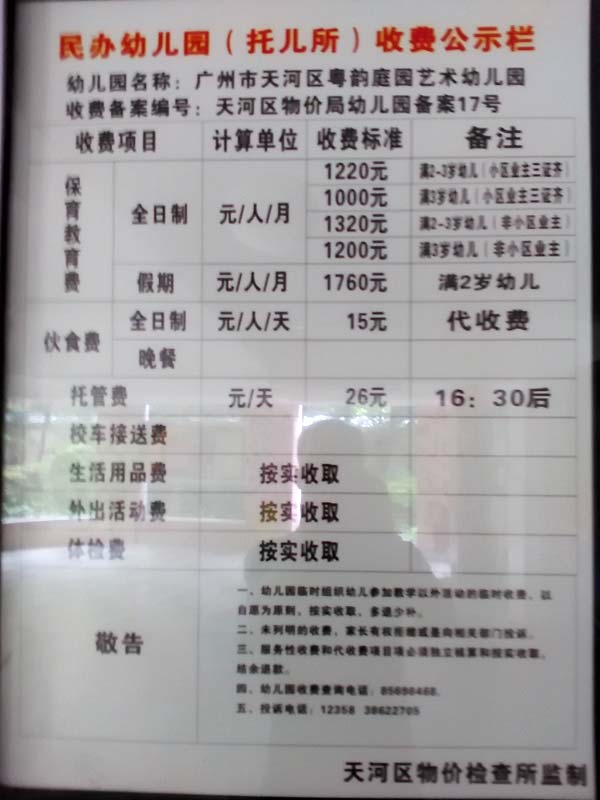 民办幼儿园（托儿所）收费公示栏
幼儿园名称：广州市天河区粤韵庭园艺术幼儿园
收费备案编号：天河区物价局幼儿园备案17号
收费项目 计算单位 收费标准 备注
保育教育费 全日制 元/人/月 1220元 满2-3岁幼儿（小区业主三证齐）
1000元 满3岁幼儿（小区业主三证齐）
1320元 满2-3岁幼儿（非小区业主）
1200元 满3岁幼儿（非小区业主）
假期 元/人/月 1760元 满2岁幼儿
伙食费 全日制 元/人/天 15元 代收费
晚餐
托管费 元/天 26元 16：30后
校车接送费
生活用品费 按实收取
外出活动费 按实收取
体检费 按实收取
敬告
一、幼儿园临时组织幼儿参加教学以外活动的临时收费，以
自愿为原则，按实收取，多退少补。
二、未列明的收费，家长有权拒缴或是向相关部门投诉。
三、服务性收费和代收费项目项必须独立核算和按实收取，
结余退款。
四、幼儿园收费查询电话：85698468.
五、投诉电话：12358 38622705
天河区物价检查所监制